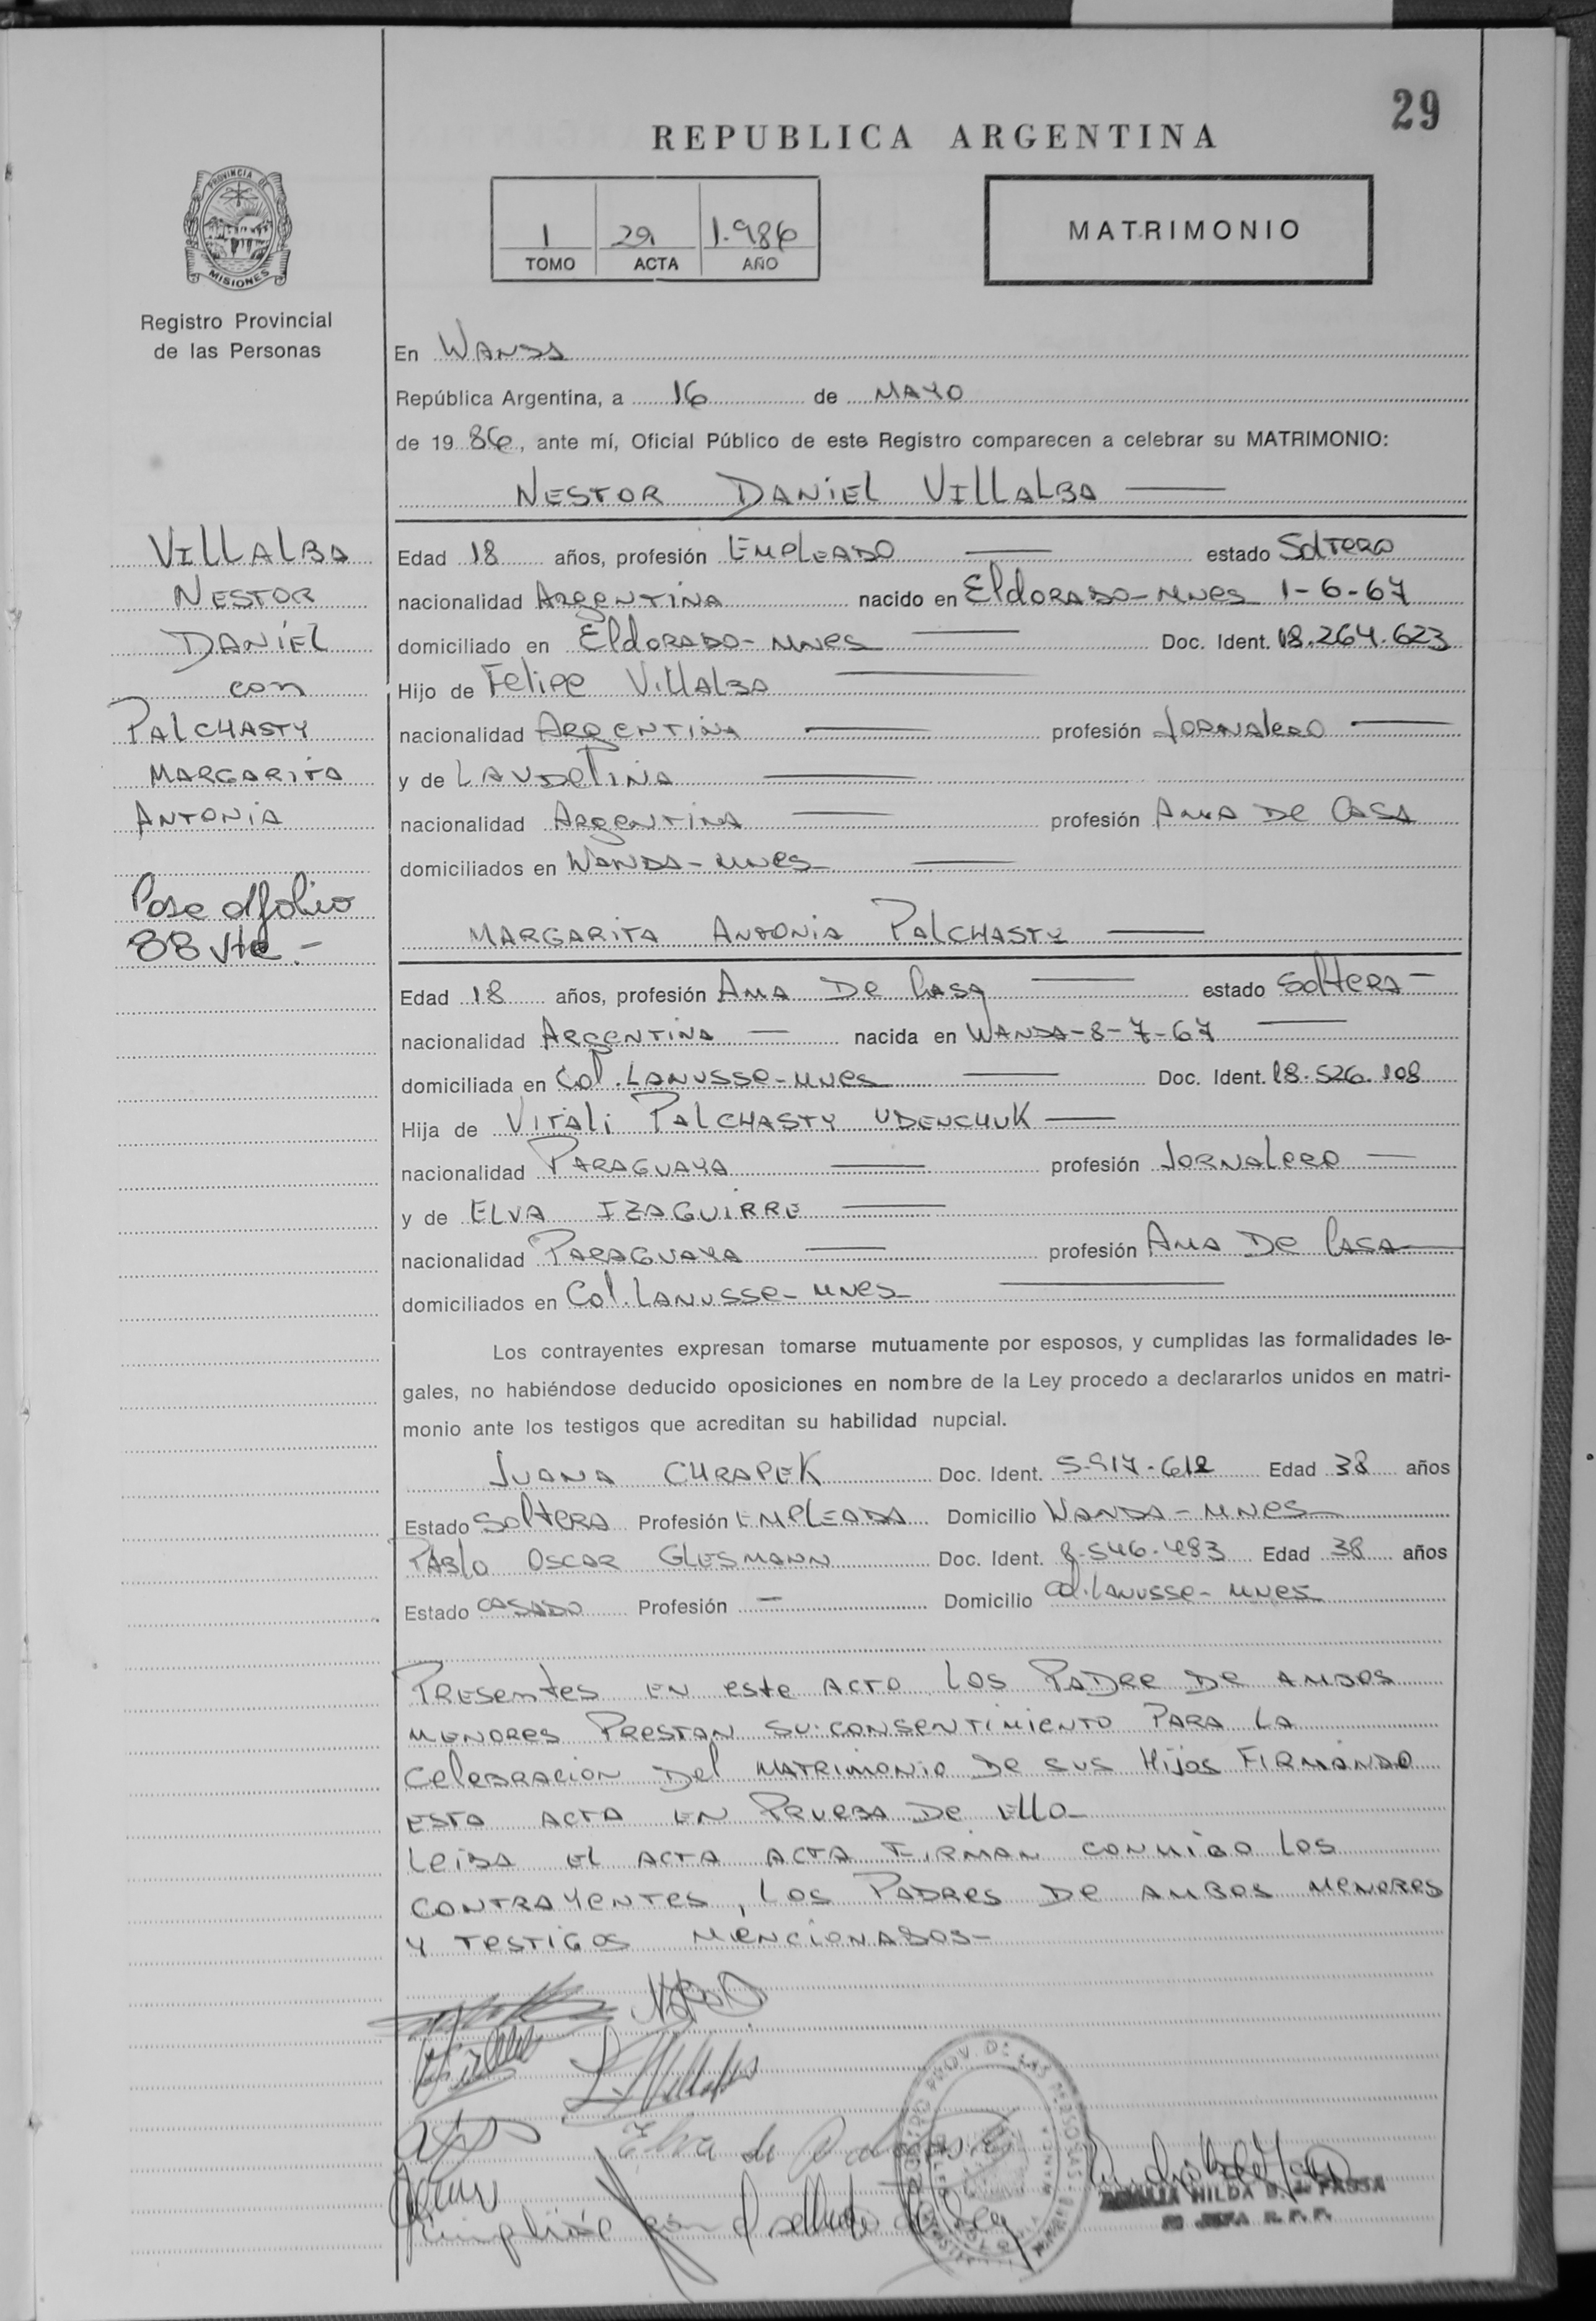 29
REPUBLICA ARGENTINA
PROVINCIA DE
MISIONES
1 29 1.986
TOMO ACTA AÑO
MATRIMONIO
Registro Provincial
de las Personas
En WANDA
República Argentina, a 16 de MAYO
de 1986, ante mí, Oficial Público de este Registro comparecen a celebrar su MATRIMONIO:
NESTOR DANIEL VILLALBA
VILLALBA
NESTOR
DANIEL
con
PALCHASTY
MARGARITA
ANTONIA
Pase al folio
88 vta.-
Edad 18 años, profesión EMPLEADO estado SOLTERO
nacionalidad ARGENTINA nacido en ELDORADO-MNES 1-6-67
domiciliado en ELDORADO-MNES Doc. Ident. 18.264.623
Hijo de FELIPE VILLALBA
nacionalidad ARGENTINA profesión JORNALERO
y de LAUDELINA
nacionalidad ARGENTINA profesión AMA DE CASA
domiciliados en WANDA-MNES
MARGARITA ANTONIA PALCHASTY
Edad 18 años, profesión AMA DE CASA estado SOLTERA-
nacionalidad ARGENTINA nacida en WANDA-8-7-67
domiciliada en Col. LANUSSE-MNES Doc. Ident. 18.526.108
Hija de VITALI PALCHASTY UDENCHUK
nacionalidad PARAGUAYA profesión JORNALERO
y de ELVA IZAGUIRRE
nacionalidad PARAGUAYA profesión AMA DE CASA
domiciliados en Col. LANUSSE-MNES
Los contrayentes expresan tomarse mutuamente por esposos, y cumplidas las formalidades le-
gales, no habiéndose deducido oposiciones en nombre de la Ley procedo a declararlos unidos en matri-
monio ante los testigos que acreditan su habilidad nupcial.
JUANA CHRAPEK Doc. Ident. 5.917.612 Edad 38 años
Estado SOLTERA Profesión EMPLEADA Domicilio WANDA-MNES
PABLO OSCAR GLESMANN Doc. Ident. 8.546.483 Edad 38 años
Estado CASADO Profesión - Domicilio Col. LANUSSE-MNES
PRESENTES EN ESTE ACTO LOS PADRE DE AMBOS
MENORES PRESTAN SU CONSENTIMIENTO PARA LA
CELEBRACION DEL MATRIMONIO DE SUS HIJOS FIRMANDO
ESTA ACTA EN PRUEBA DE ELLO-
LEIDA EL ACTA ACTA FIRMAN CONMIGO LOS
CONTRAYENTES, LOS PADRES DE AMBOS MENORES
Y TESTIGOS MENCIONADOS-
Elva de
HILDA